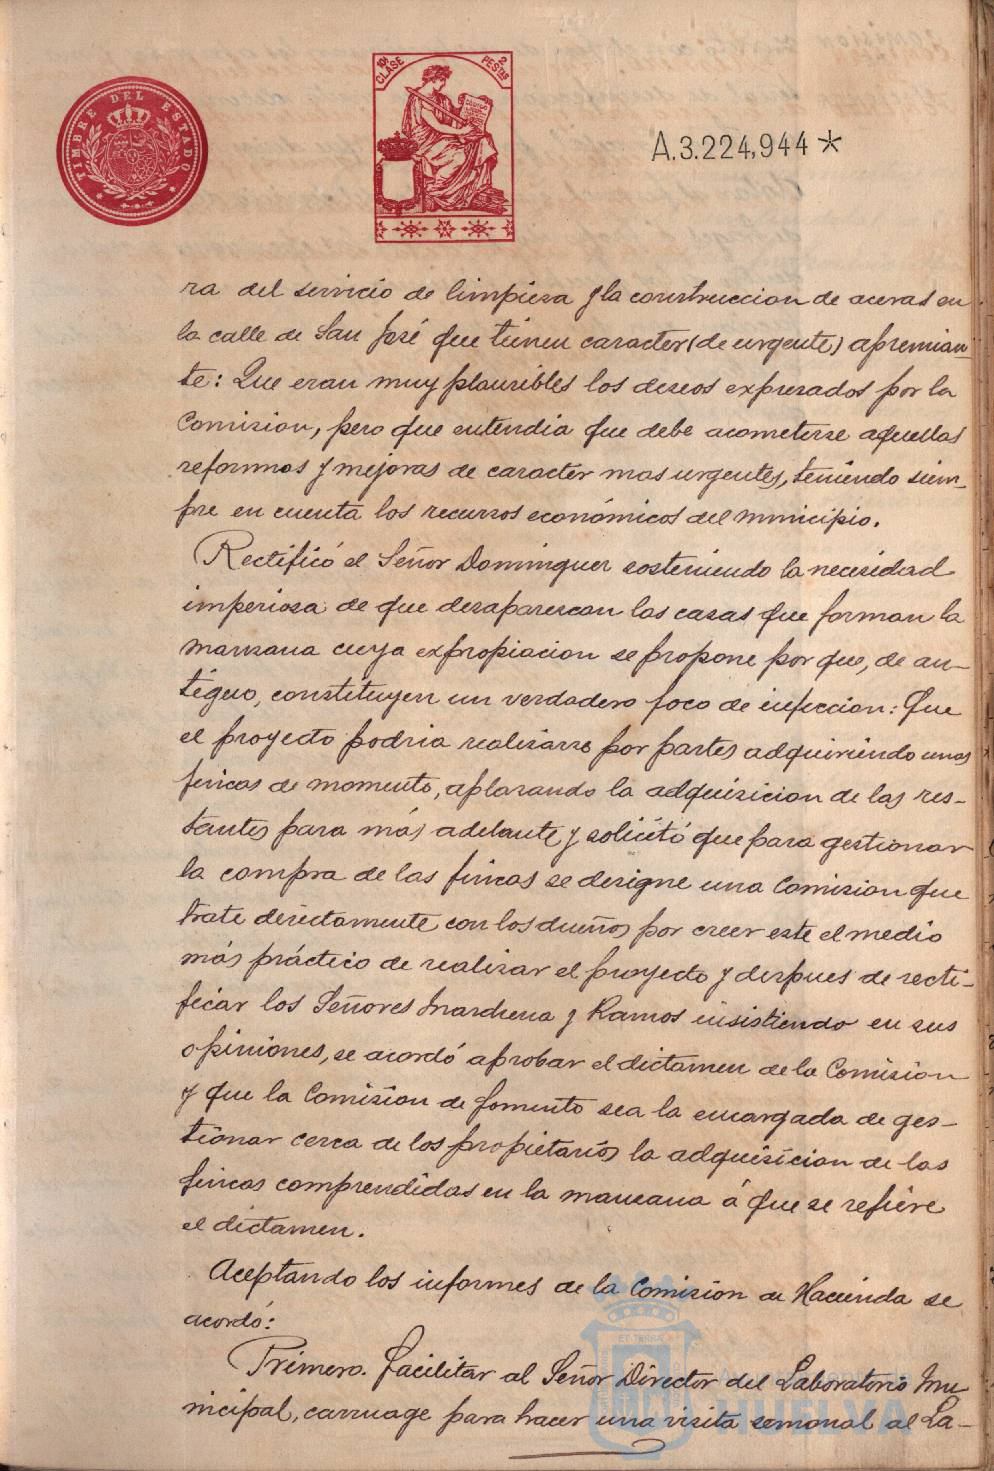 TIMBRE DEL ESTADO
10ª CLASE
2 PESTAS
A.3.224,944*
ra del servicio de limpiesa y la construccion de aceras en
la calle de San José que tienen caracter (de urgente) apremian
te: Que eran muy plausibles los deseos expresados por la
Comision, pero que entendia que debe acometerse aquellas
reformas y mejoras de caracter mas urgentes, teniendo siem-
pre en cuenta los recursos económicos del municipio.
Rectificó el Señor Dominguez sosteniendo la necesidad
imperiosa de que desaparescan las casas que forman la
mansana cuya expropiacion se propone por que, de an-
tiguo, constituyen un verdadero foco de infeccion: Que
el proyecto podria realisarse por partes adquiriendo unas
fincas de momento, aplasando la adquisicion de las res-
tantes para más adelante y solicitó que para gestionar
la compra de las fincas se designe una Comision que
trate directamente con los dueños por creer este el medio
más práctico de realisar el proyecto y despues de recti-
ficar los Señores Marchena y Ramos insistiendo en sus
opiniones, se acordó aprobar el dictamen de la Comision
y que la Comision de fomento sea la encargada de ges-
tionar cerca de los propietarios la adquisicion de las
fincas comprendidas en la mansana á que se refiere
el dictamen.
Aceptando los informes de la Comision de Hacienda se
acordó:
Primero. Facilitar al Señor Director del Laboratorio Mu
nicipal, carruage para hacer una visita semanal al La-
HUELVA